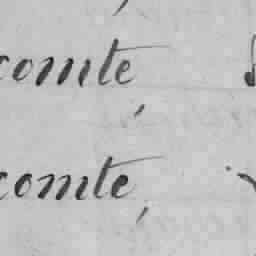 comte
comte,